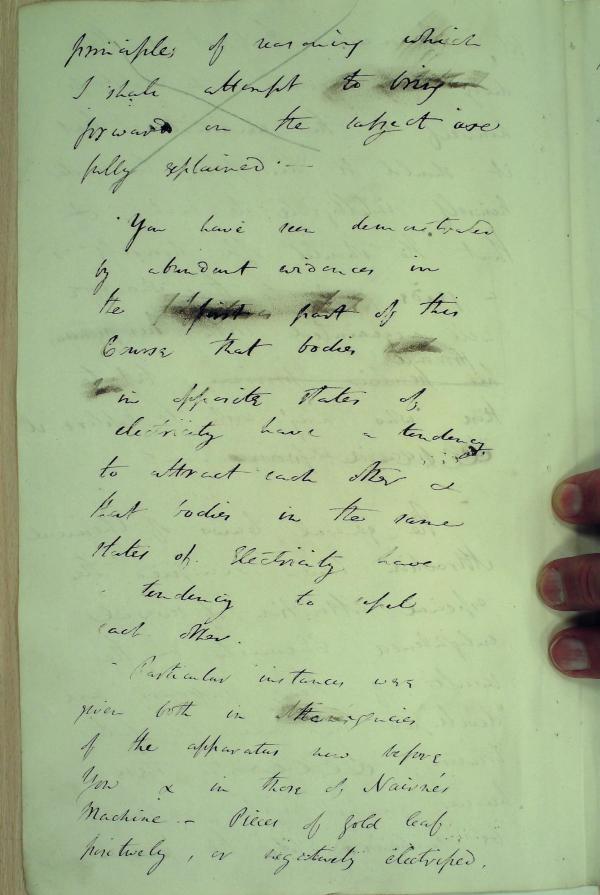 principles of reasoning which
I shall attempt to bring
forward on the subject are
fully explained. —
You have seen demonstrated
by abundant evidences in
the first part of this
Course that bodies
in opposite states of
electricity have a tendency
to attract each other &
that bodies in the same
states of Electricity have
a tendency to repel
each other.
Particular instances were
given both in the
of the apparatus now before
You & in those of Nairne's
Machine. — Pieces of gold leaf
positively, or negatively electrified,